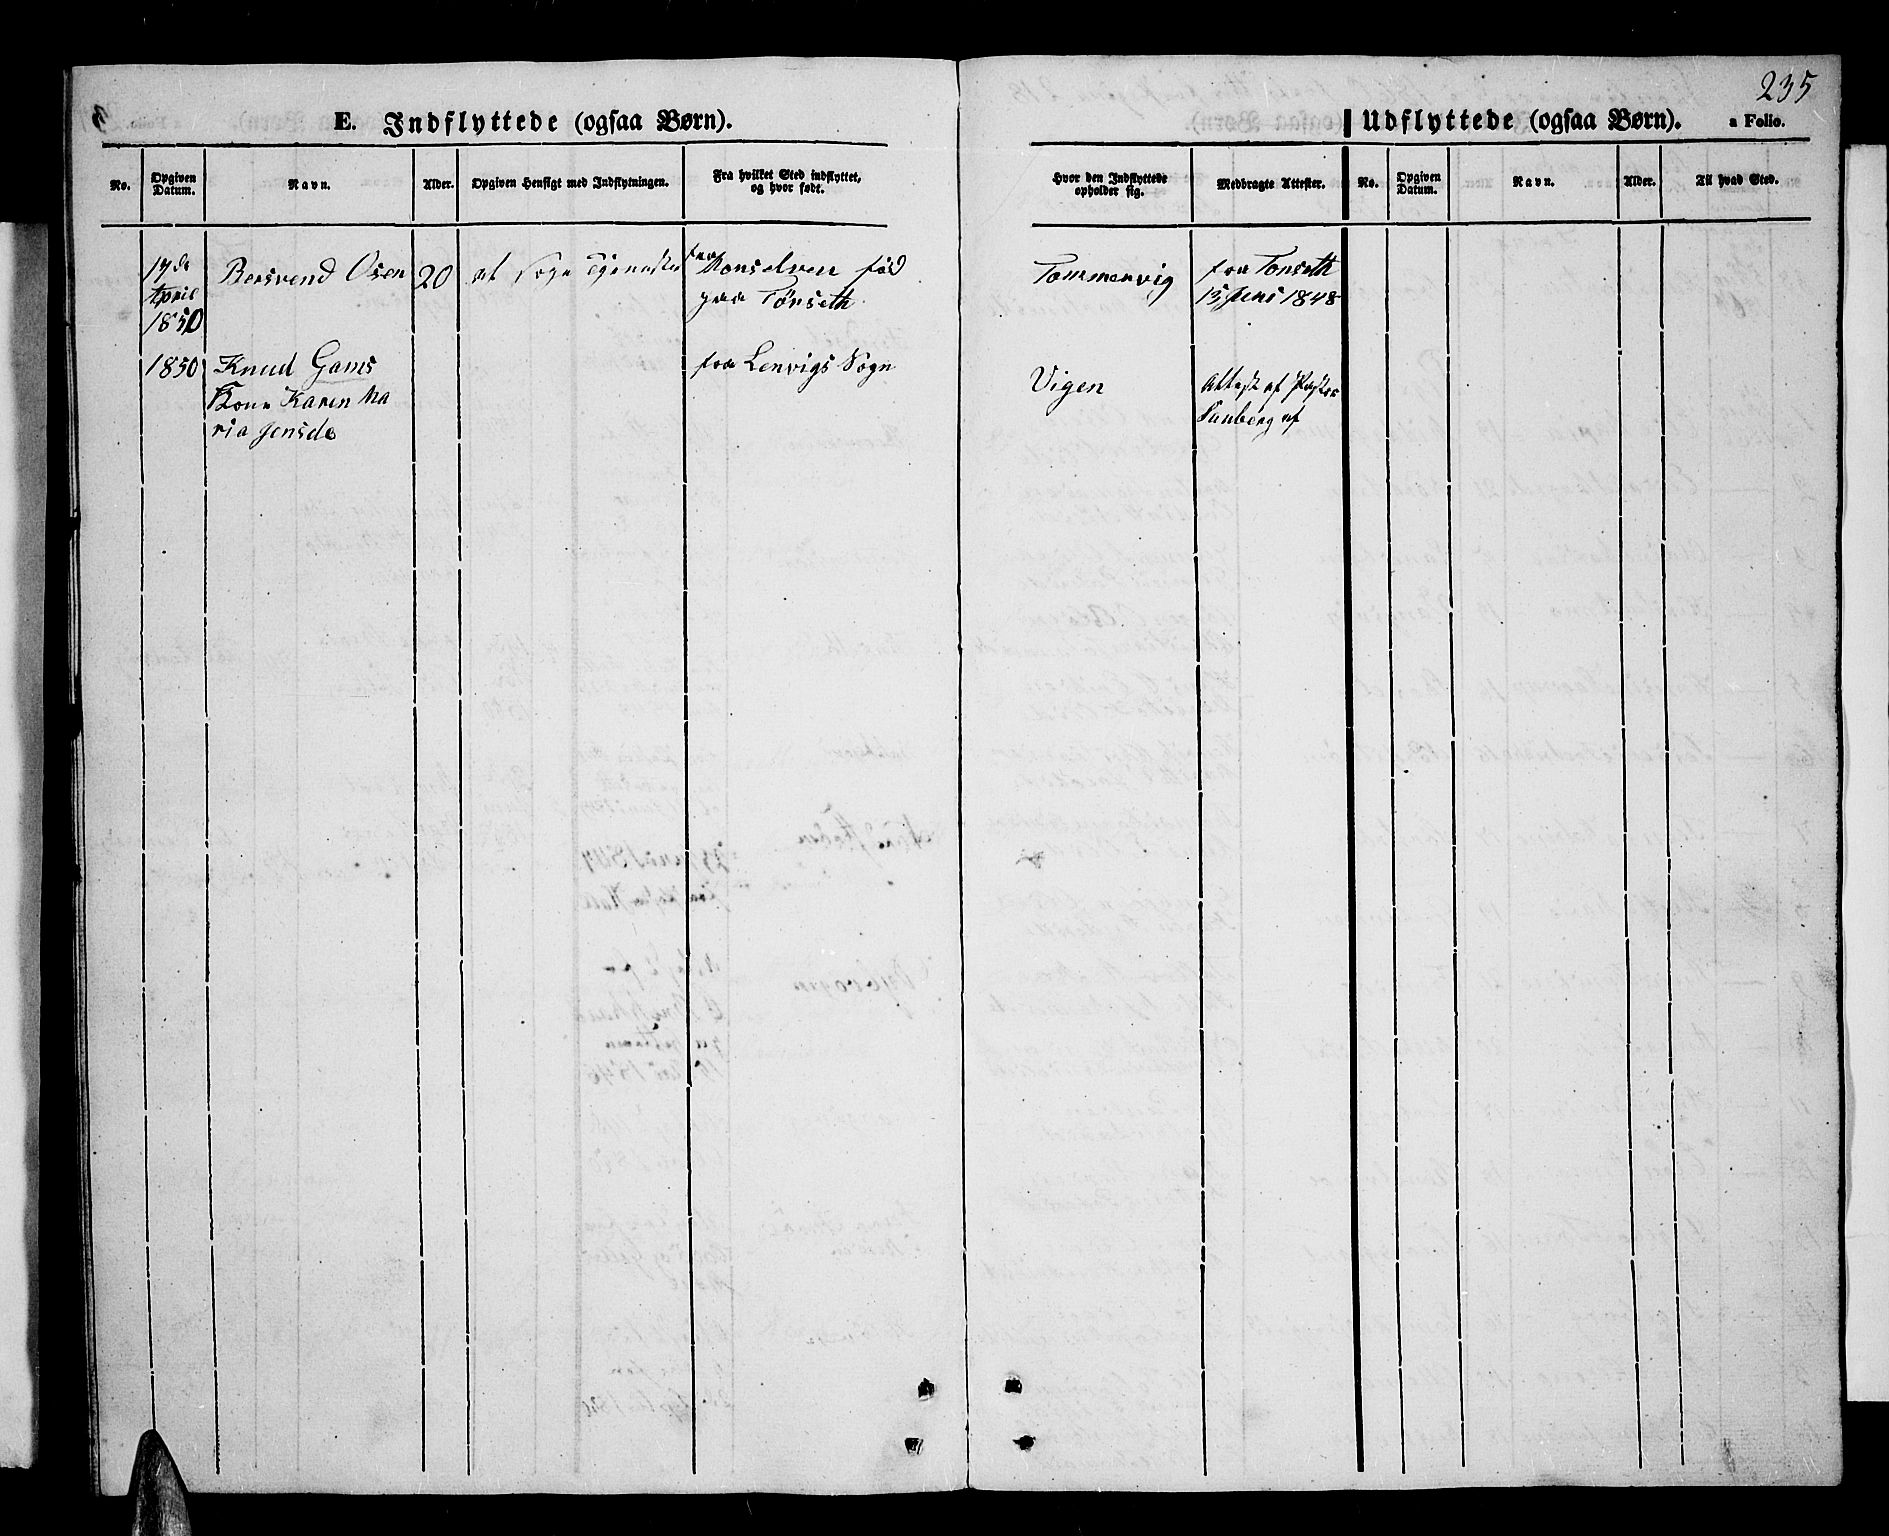 235
E. Indflyttede (ogsaa Børn).
Udflyttede (ogsaa Børn).
a Folio.
No.
Opgiven Datum.
Navn.
Alder.
Opgiven Hensigt med Indflytningen.
Fra hvilket Sted indflyttet,
og hvor født.
Hvor den Indflyttede
opholder sig.
Medbragte Attester.
No.
Opgiven Datum.
Navn.
Alder.
Til hvad Sted.
17de
April
1850
Bersvend Osen
20
at søge Tjeneste
fra
Monselven fød
paa Tønseth
Tommervig
fra Tonseth
15 Juni 1848
1850
Knud Gams
Kone Karen Ma
ria Jensdr
fra Lenvigs Sogn
Vigen
Attest af Pastor
af